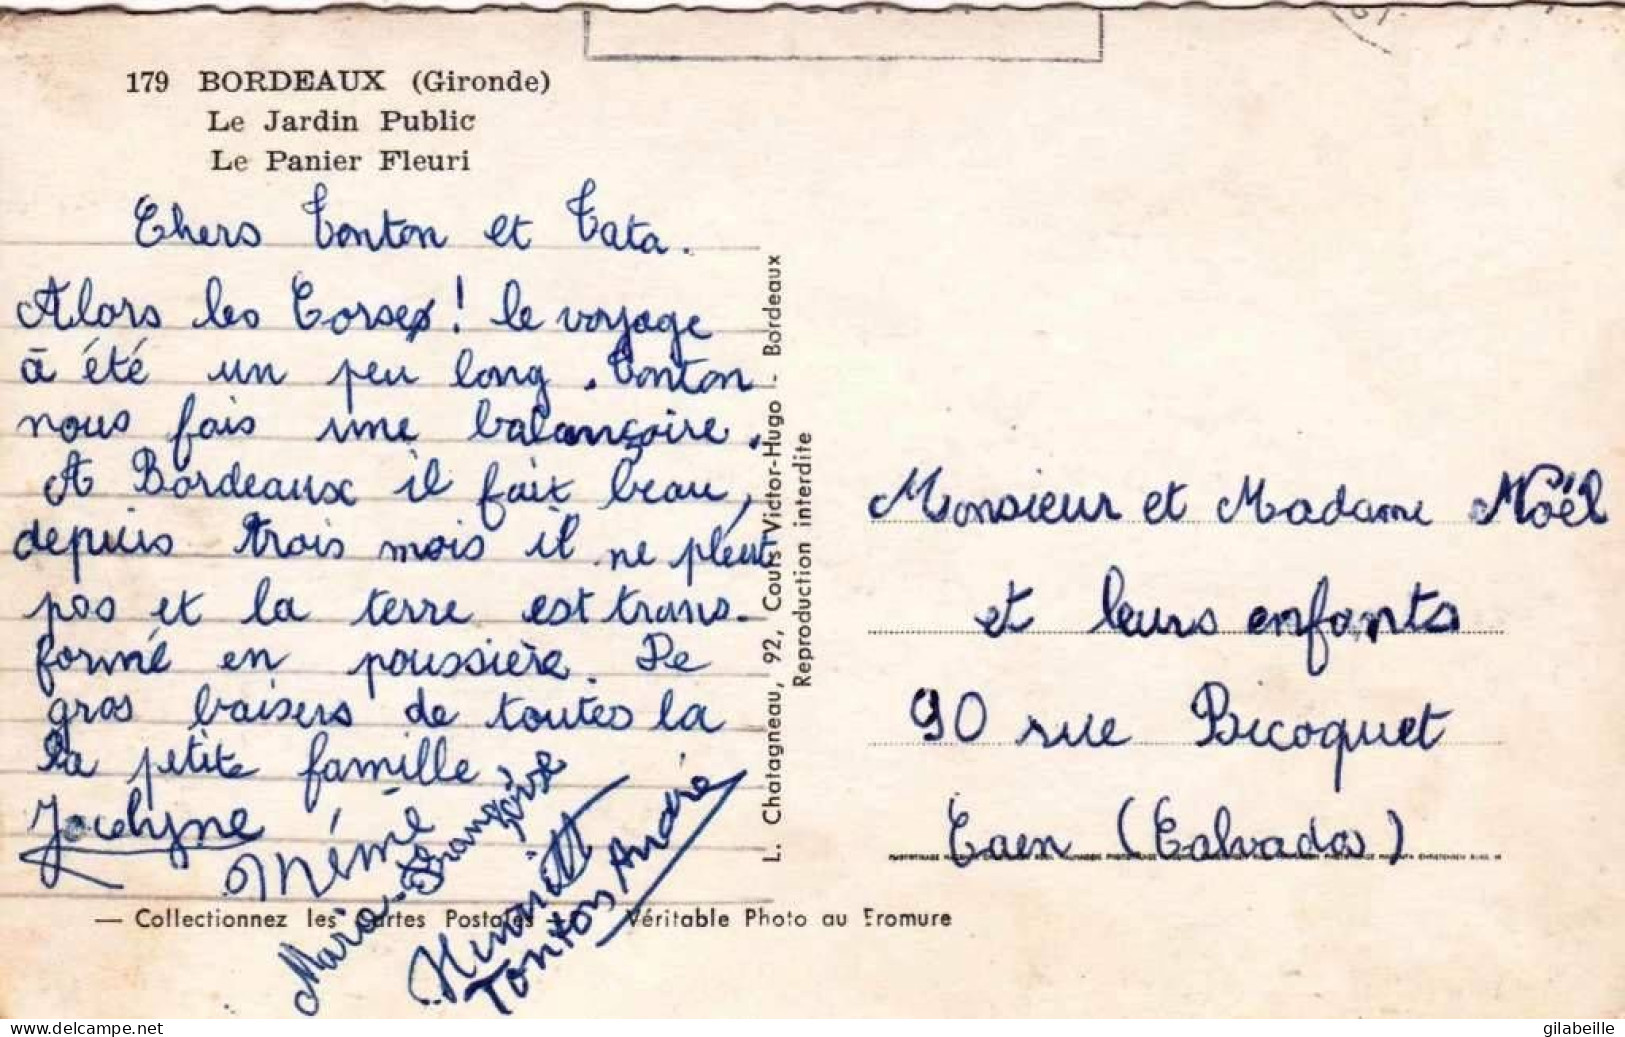 179 BORDEAUX (Gironde)
Le Jardin Public
Le Panier Fleuri
Chers Tonton et Tata.
Alors les Corses! le voyage
à été un peu long. Tonton
nous fais une balançoire.
A Bordeaux il fait beau,
depuis trois mois il ne pleut
pas et la terre est trans-
formé en poussière. De
gros baisers de toutes la
la petite famille
Jocelyne
Mémé
Marie-Françoise
Tonton André
L. Chatagneau, 92, Cours Victor-Hugo - Bordeaux
Reproduction interdite
Monsieur et Madame Noël
et leurs enfants
90 rue Bicoquet
Caen (Calvados)
— Collectionnez les Cartes Postales — Véritable Photo au Bromure
www.delcampe.net
gilabeille